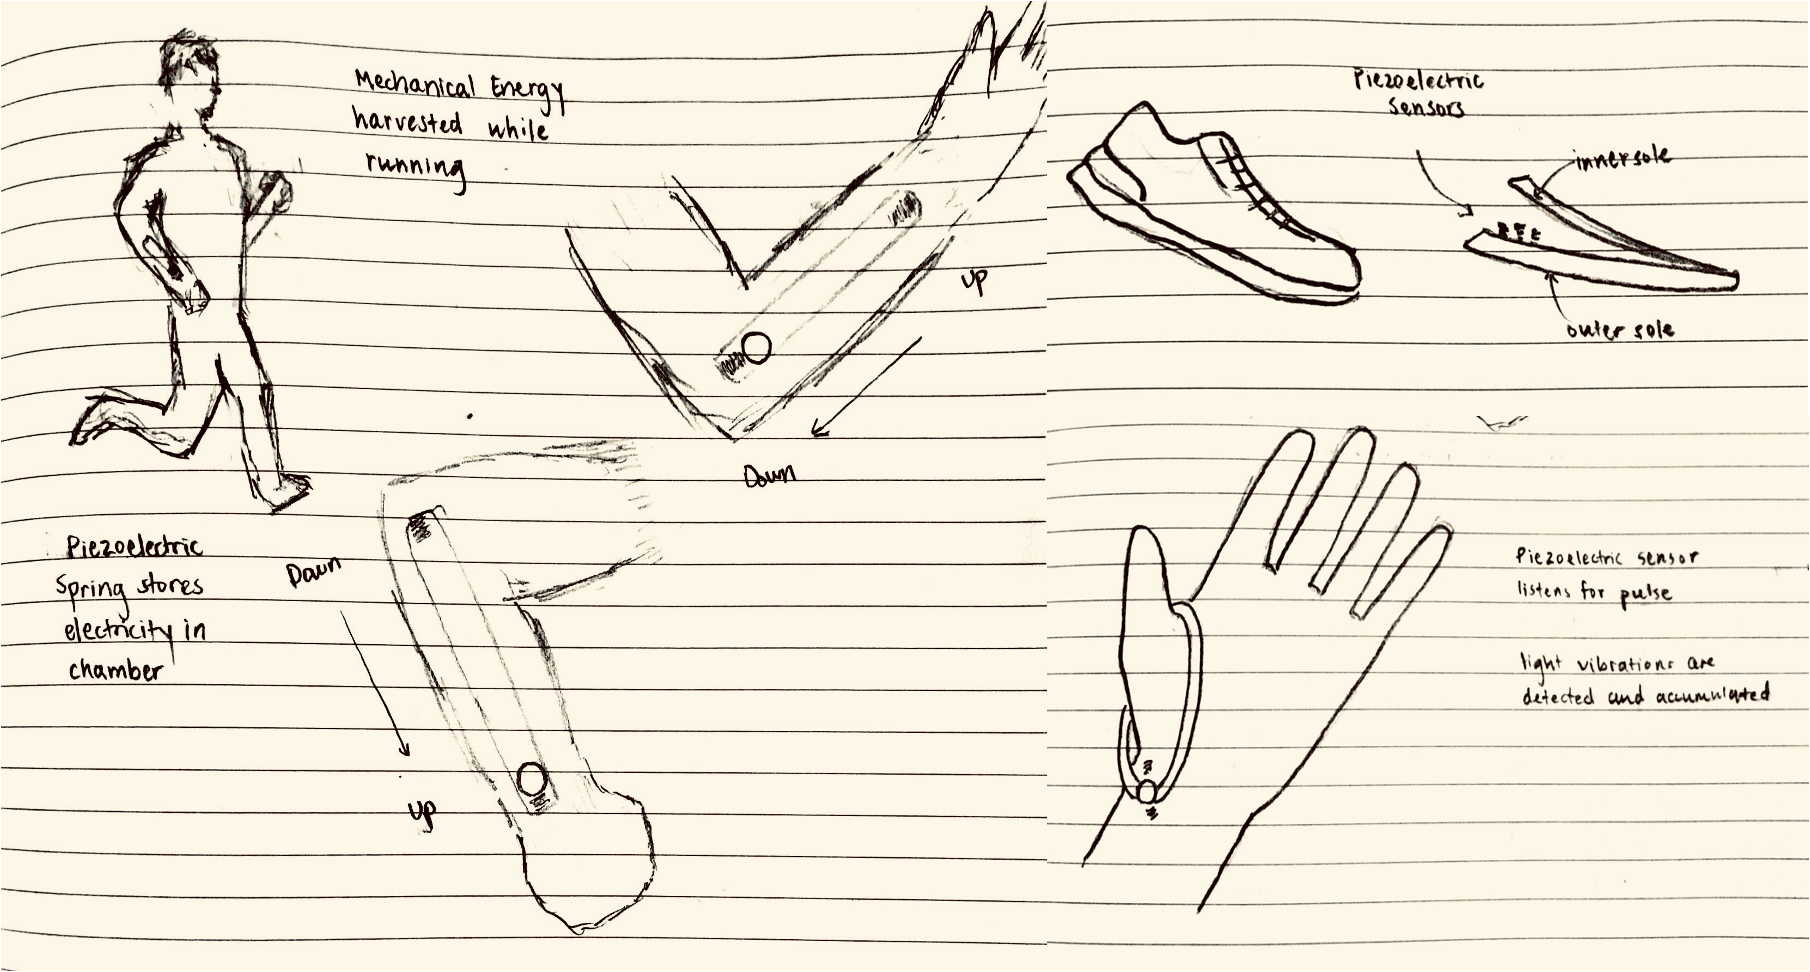 Mechanical Energy
harvested while
running
UP
Down
Piezoelectric
Spring stores
electricity in
chamber
Down
UP
Piezoelectric
Sensors
inner sole
outer sole
Piezoelectric sensor
listens for pulse
light vibrations are
detected and accumulated